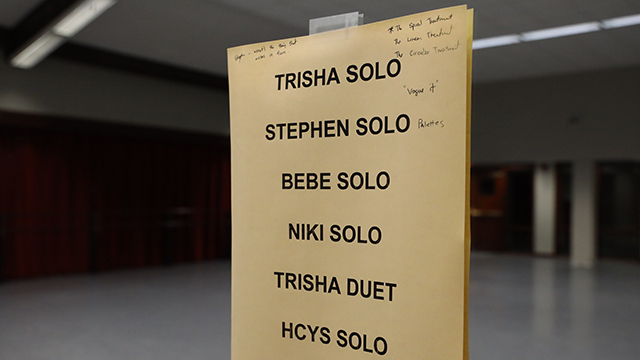 * The Spiral Treatment
The Linear Treatment
The Circular Treatment
TRISHA SOLO
"Vogue it"
STEPHEN SOLO Palettes
BEBE SOLO
NIKI SOLO
TRISHA DUET
HCYS SOLO